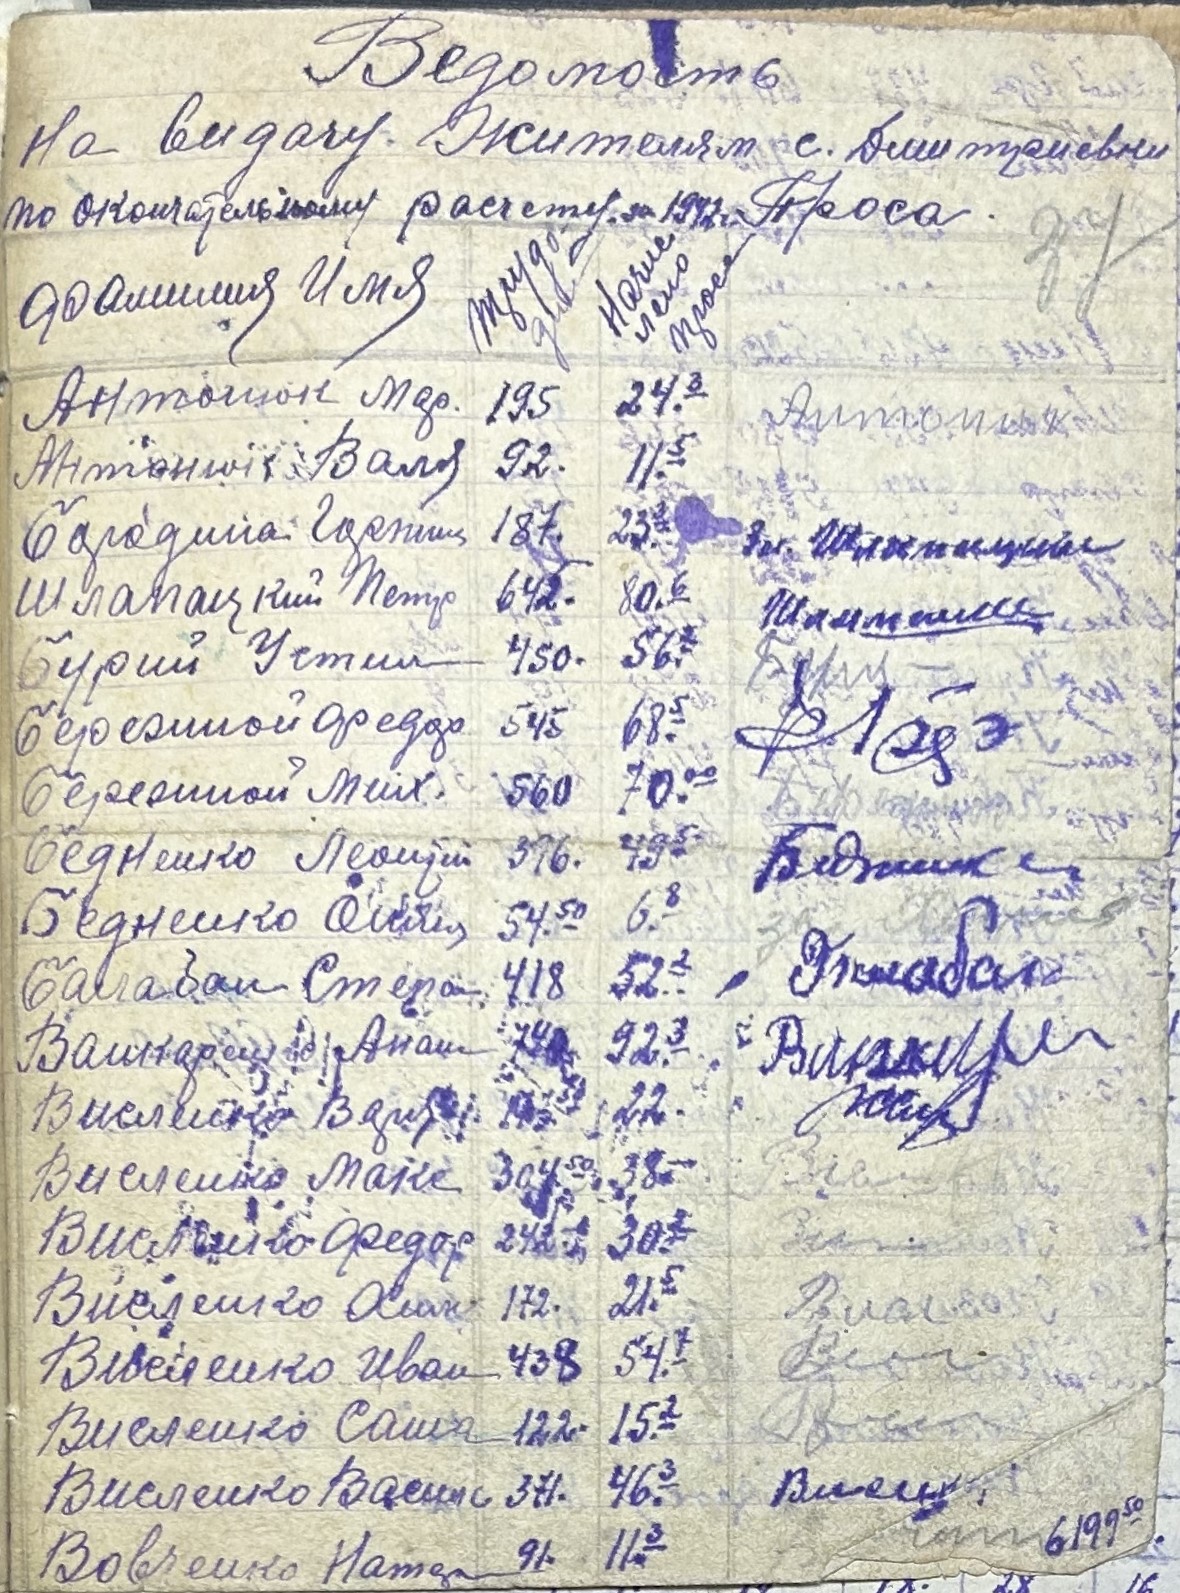 Ведомость
На видачу Жителям с. Дмитриевки
по окончательному расчету за 1942 Проса.
Фамилия Имя Трудо дн Начислено проса
Антонюк Мар. 195 24.3 Антонюк
Антонюк Валя 92. 11.5
Бародина 187. 23. За. Шлапацкий
Шлапацкий Петр 642. 80.6
Бурий Устим 450. 56.2 Бурий
Бережной Федор 545 68.5
Бережной Мих. 560 70.00
Бедненко Леонтий 396. 49.5 Бедненко
Бедненко 54.50 6.8 за
Балабан Степан 418 52.2
Ванжаренко Анан 92.3
Висленко Варв 22.
Висленко Макс 304.50 38.-
Висленко Федор 242. 30.2
Висленко 172. 21.5
Висленко Иван 438 54.7
Висленко Саша 122. 15.2
Висленко Василь 371. 46.3
Вовченко Натал 91. 11.3
6199.50